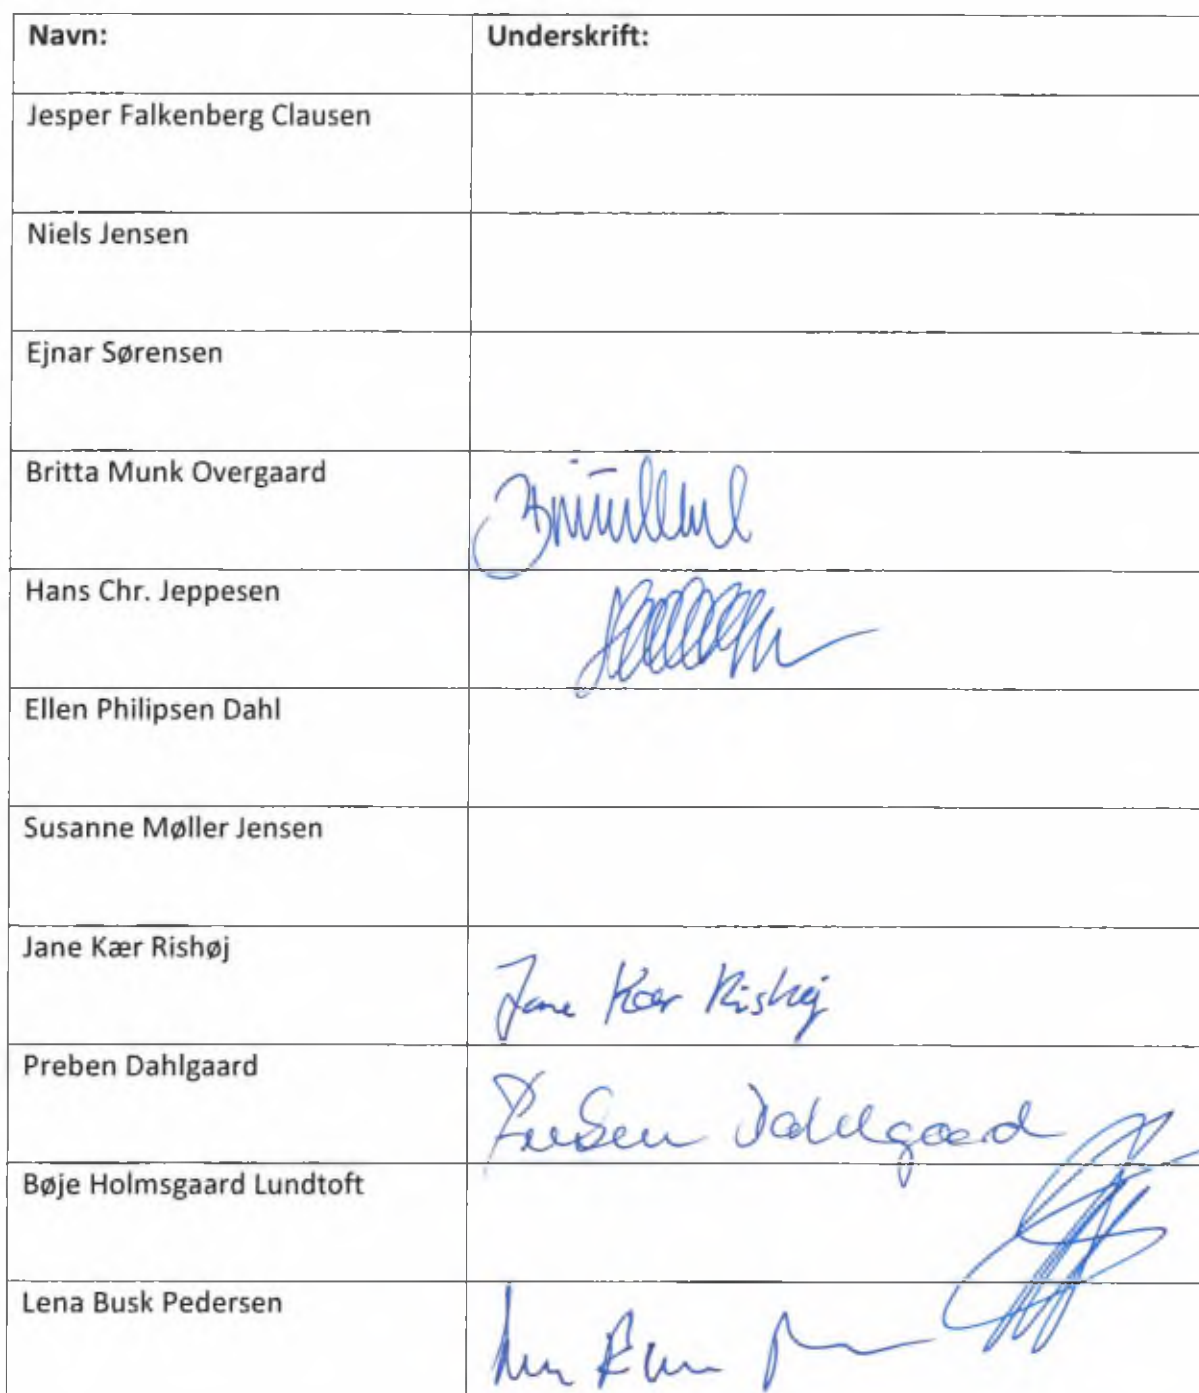 Navn: Underskrift:
Jesper Falkenberg Clausen
Niels Jensen
Ejnar Sørensen
Britta Munk Overgaard
Hans Chr. Jeppesen
Ellen Philipsen Dahl
Susanne Møller Jensen
Jane Kær Rishøj Jane Kær Rishøj
Preben Dahlgaard Preben Dahlgaard
Bøje Holmsgaard Lundtoft
Lena Busk Pedersen